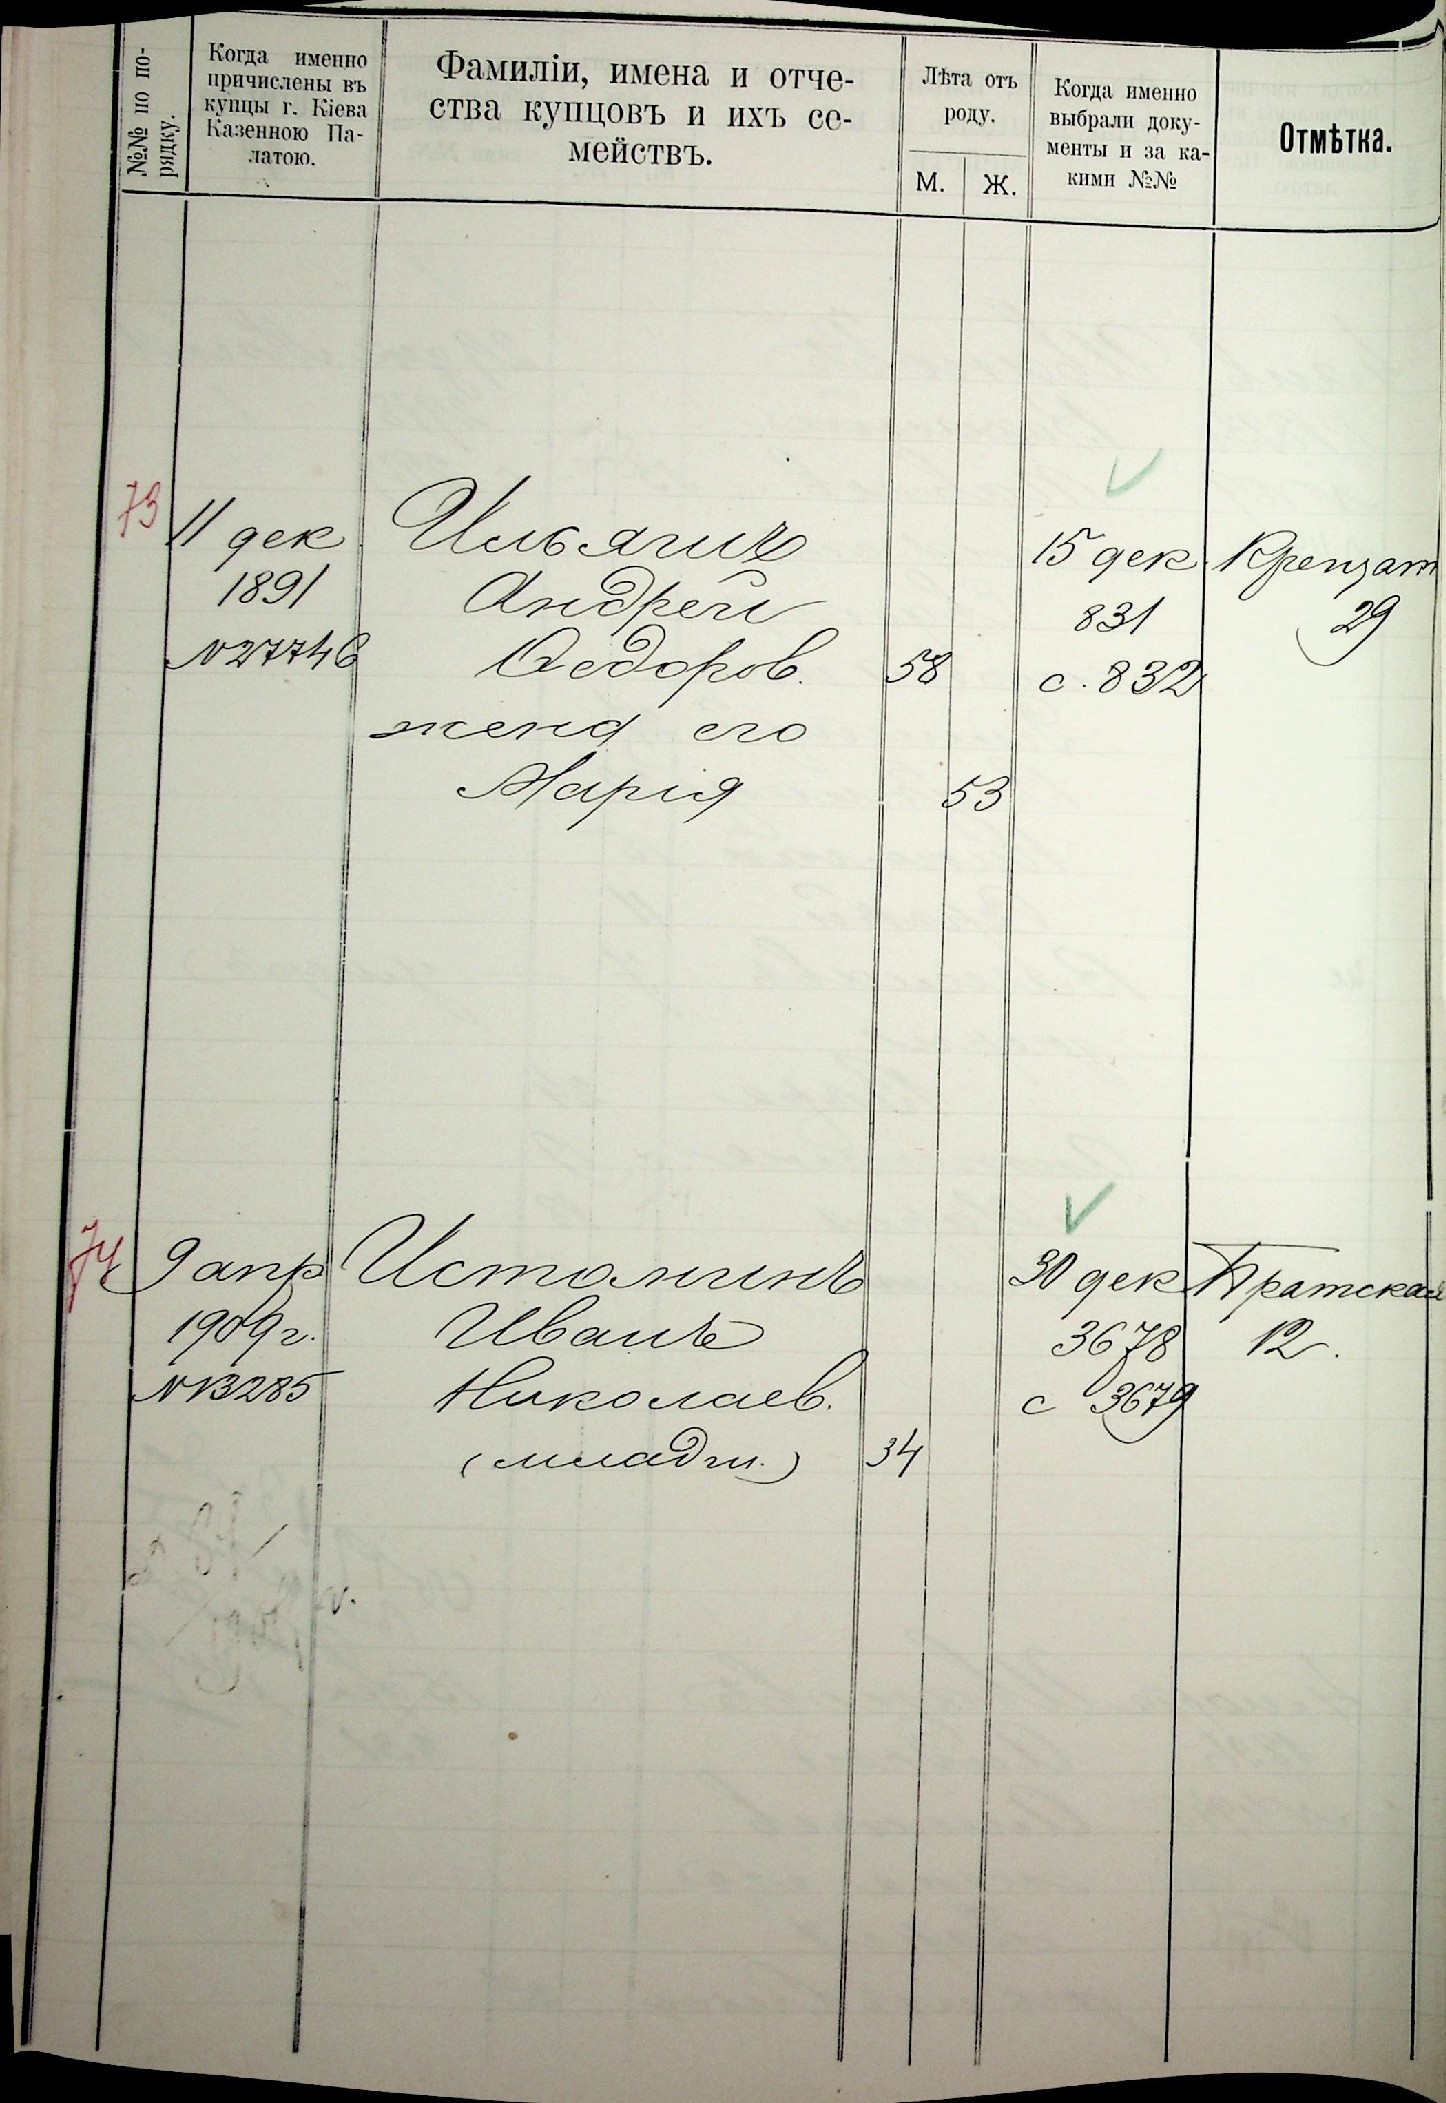 №№ по по-
рядку.
Когда именно
причислены въ
купцы г. Кіева
Казенною Па-
латою.
Фамиліи, имена и отче-
ства купцовъ и ихъ се-
мействъ.
Лѣта отъ
роду.
М.
Ж.
Когда именно
выбрали доку-
менты и за ка-
кими №№
Отмѣтка.
73
11 дек
1891
№27746
Андрей
Федоров.
жена его
Марія
58
53
15 дек
831
с. 832
Крещат
29
74
9 апр
1909 г.
№13285
Истоминъ
Иванъ
Николаев.
(младш.)
34
30 дек
3678
с 3679
Братская
12.